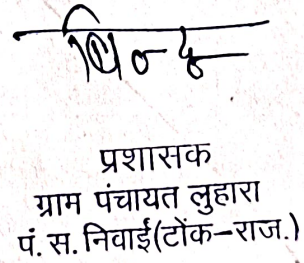 प्रशासक
ग्राम पंचायत लुहारा
पं. स. निवाई (टोंक-राज.)